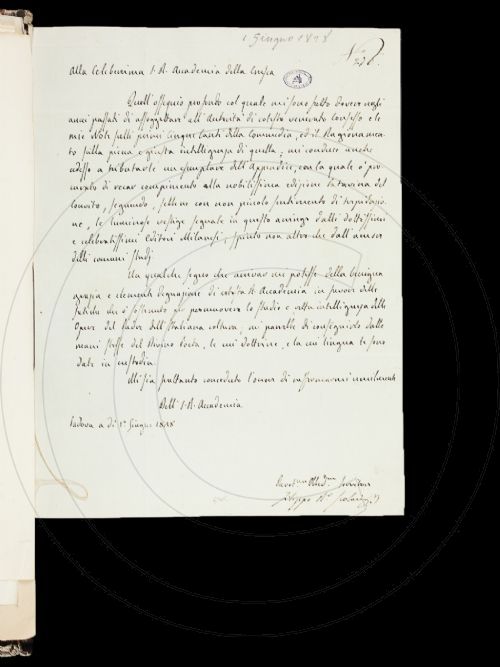 1 Giugno 1828
N.° 278.
Alla Celeberrima I. R. Accademia della Crusca
Quell'ossequio profondo col quale mi sono fatto dovere negli
anni passati di assoggettare all'Autorità di cotesto venerando Consesso e le
mie Note sulli primi cinque Canti della Commedia, ed il Ragionamento
sulla piena e giusta intelligenza di quella, mi conduce anche
adesso a tributarle un esemplare dell'Appendice, con la quale ò pro
curato di recar compimento alla nobilissima edizione Patavina del
Convito, seguendo, sebben con non piccolo sentimento di trepidazio
ne, le luminose vestige segnate in questo aringo dalli dottissimi
e celebratissimi Editori Milanesi, spinto non altro che dall'amor
delli comuni studj.
Un qualche segno che arrivar mi potesse della benigna
grazia e clemente degnazione di cotesta R. Accademia in favore delle
fatiche che ò sostenuto per promuovere lo studio e retta intelligenza delle
Opere del Padre dell'Italiana coltura, mi parrebbe di conseguirlo dalle
mani stesse del Divino Poeta, le cui dottrine, e la cui lingua le sono
date in custodia.
Mi sia frattanto conceduto l'onore di rassegnarmi umilmente
Dell'I. R. Accademia
Padova a dì 1° Giugno 1828
Servitore
Filippo